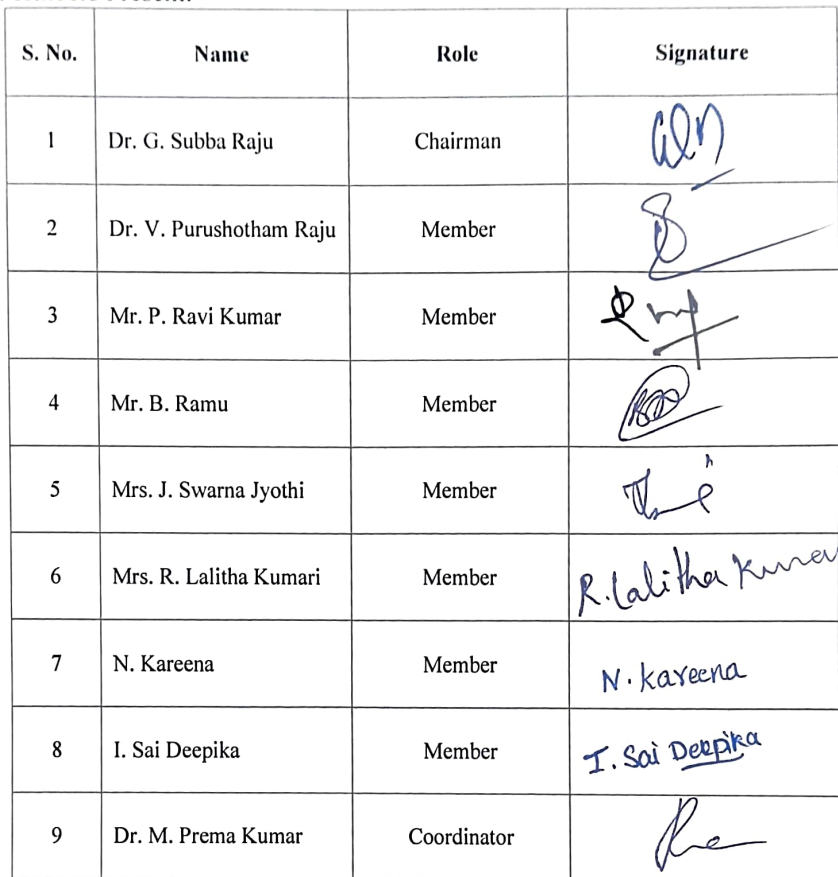 S. No. Name Role Signature
1 Dr. G. Subba Raju Chairman
2 Dr. V. Purushotham Raju Member
3 Mr. P. Ravi Kumar Member
4 Mr. B. Ramu Member
5 Mrs. J. Swarna Jyothi Member
6 Mrs. R. Lalitha Kumari Member R. Lalitha
7 N. Kareena Member N. Kareena
8 I. Sai Deepika Member I. Sai Deepika
9 Dr. M. Prema Kumar Coordinator